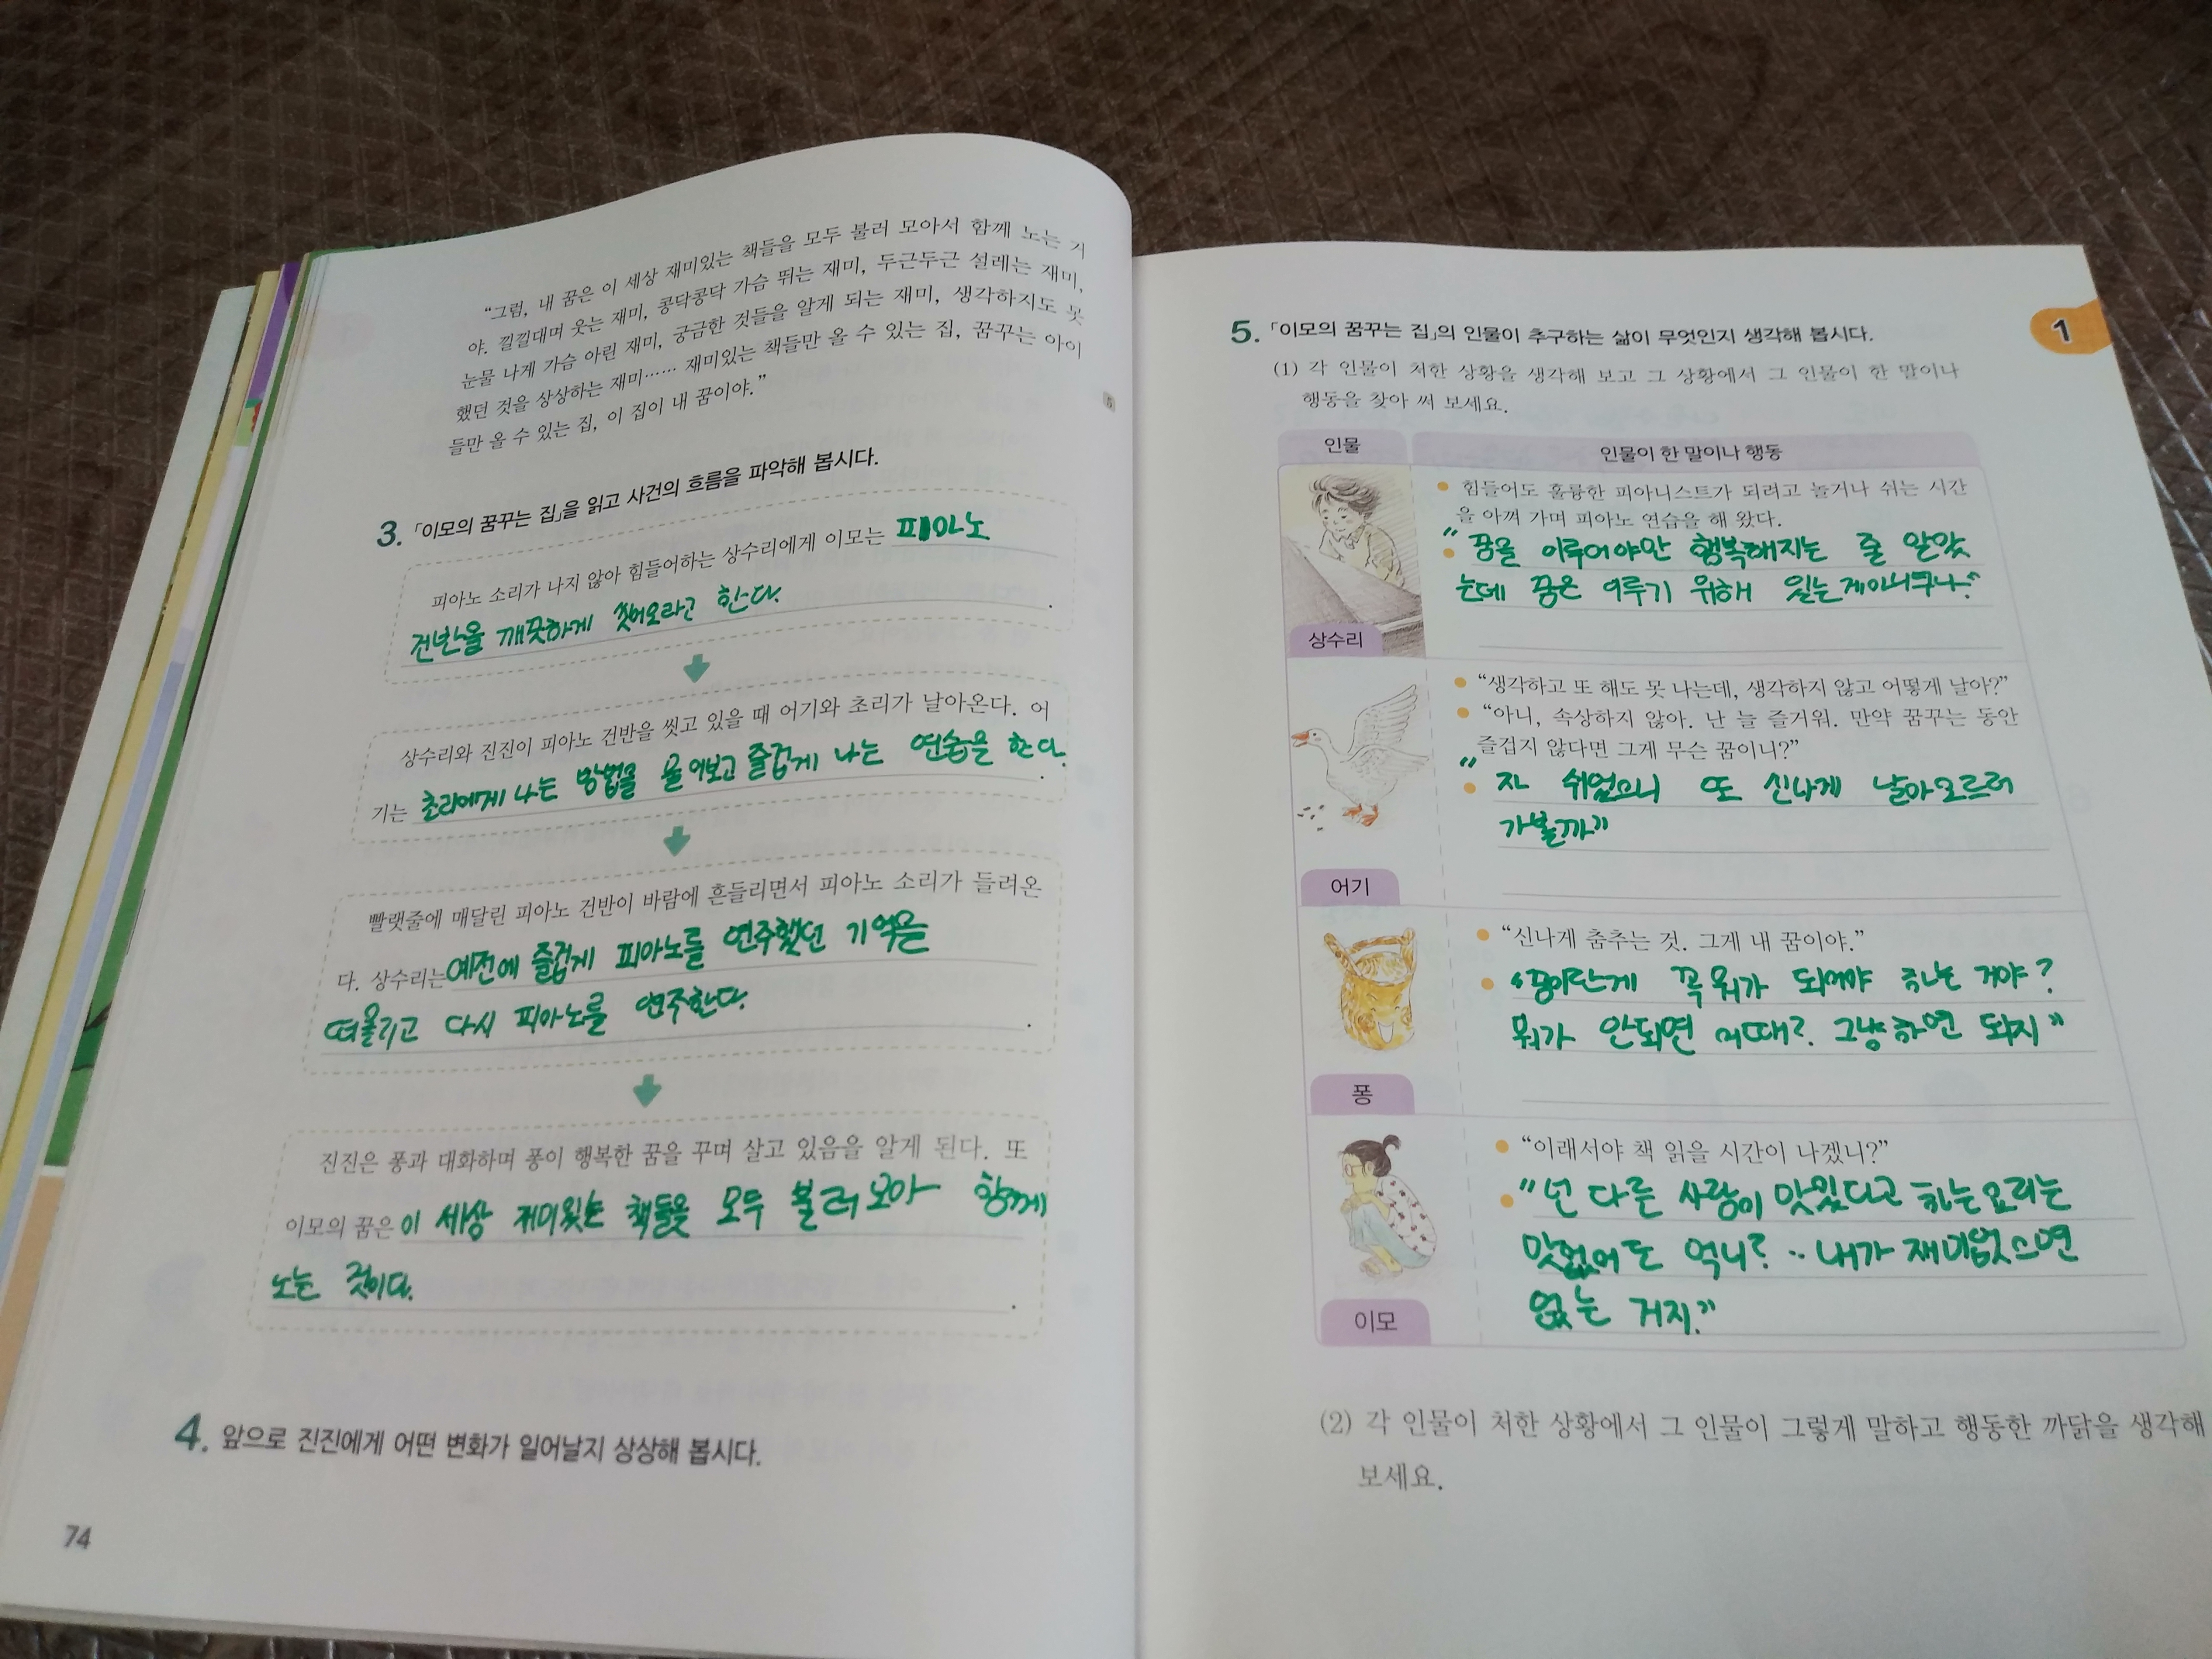 "그럼, 내 꿈은 이 세상 재미있는 책들을 모두 불러 모아서 함께 노는 거
야. 낄낄대며 웃는 재미, 콩닥콩닥 가슴 뛰는 재미, 두근두근 설레는 재미,
눈물 나게 가슴 아린 재미, 궁금한 것들을 알게 되는 재미, 생각하지도 못
했던 것을 상상하는 재미…… 재미있는 책들만 올 수 있는 집, 꿈꾸는 아이
들만 올 수 있는 집, 이 집이 내 꿈이야."
5
3. 「이모의 꿈꾸는 집」을 읽고 사건의 흐름을 파악해 봅시다.
피아노 소리가 나지 않아 힘들어하는 상수리에게 이모는 피아노
건반을 깨끗하게 씻어오라고 한다.
상수리와 진진이 피아노 건반을 씻고 있을 때 어기와 초리가 날아온다. 어
기는 초리에게 나는 방법을 물어보고 즐겁게 나는 연습을 한다.
빨랫줄에 매달린 피아노 건반이 바람에 흔들리면서 피아노 소리가 들려온
다. 상수리는 예전에 즐겁게 피아노를 연주했던 기억을
떠올리고 다시 피아노를 연주한다.
진진은 퐁과 대화하며 퐁이 행복한 꿈을 꾸며 살고 있음을 알게 된다. 또
이모의 꿈은 이 세상 재미있는 책들을 모두 불러 모아 함께
노는 것이다.
4. 앞으로 진진에게 어떤 변화가 일어날지 상상해 봅시다.
74
1
5. 「이모의 꿈꾸는 집」의 인물이 추구하는 삶이 무엇인지 생각해 봅시다.
(1) 각 인물이 처한 상황을 생각해 보고 그 상황에서 그 인물이 한 말이나
행동을 찾아 써 보세요.
인물 인물이 한 말이나 행동
• 힘들어도 훌륭한 피아니스트가 되려고 놀거나 쉬는 시간
을 아껴 가며 피아노 연습을 해 왔다.
• "꿈을 이루어야만 행복해지는 줄 알았
는데 꿈은 이루기 위해 있는게아니구나."
상수리
• "생각하고 또 해도 못 나는데, 생각하지 않고 어떻게 날아?"
• "아니, 속상하지 않아. 난 늘 즐거워. 만약 꿈꾸는 동안
즐겁지 않다면 그게 무슨 꿈이니?"
• "자 쉬었으니 또 신나게 날아오르러
가볼까"
어기
• "신나게 춤추는 것. 그게 내 꿈이야."
• "꿈이란게 꼭 뭐가 되어야 하는 거야?
뭐가 안되면 어때? 그냥 하면 되지"
퐁
• "이래서야 책 읽을 시간이 나겠니?"
• "넌 다른 사람이 맛있다고 하는요리는
맛없어도 먹니? ·· 내가 재미없으면
없는 거지."
이모
(2) 각 인물이 처한 상황에서 그 인물이 그렇게 말하고 행동한 까닭을 생각해
보세요.